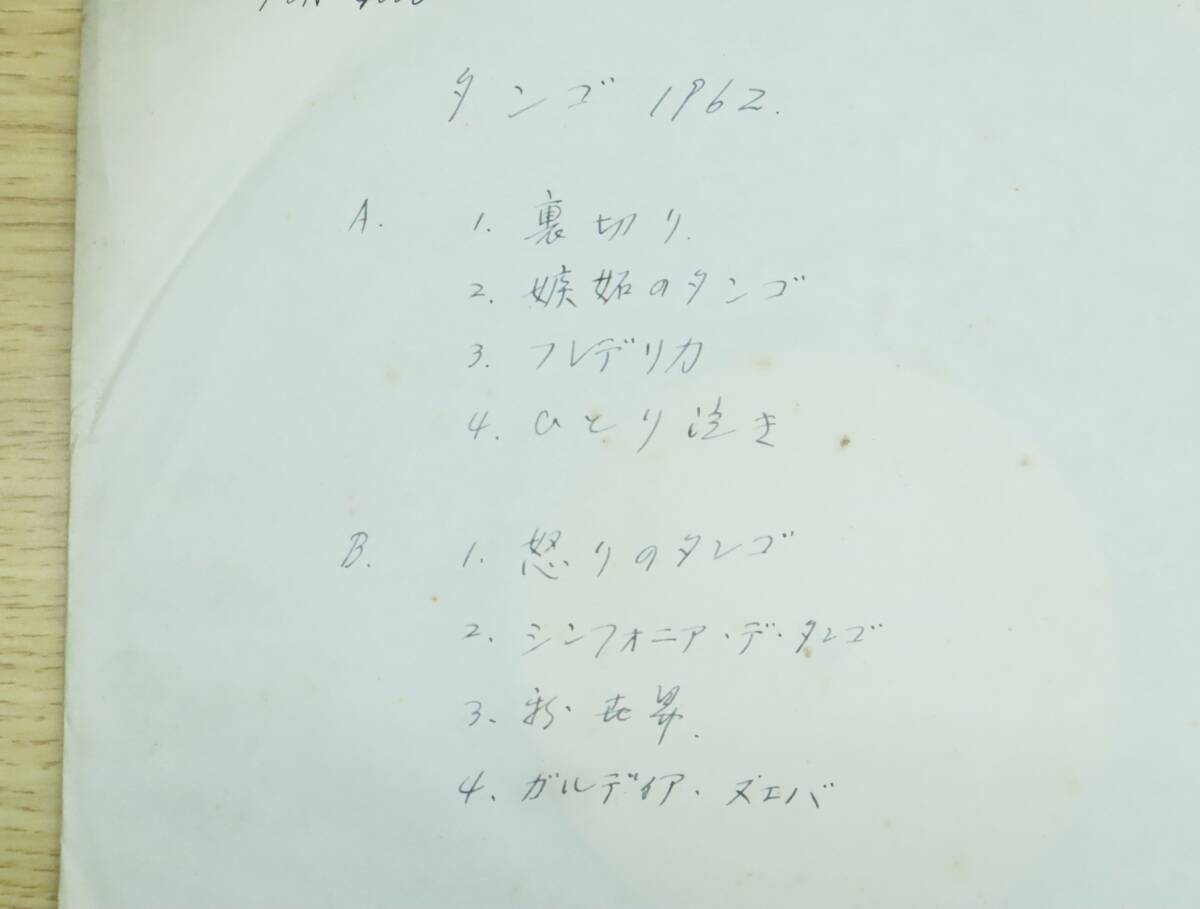 タンゴ 1962.
A. 1. 裏切り.
2. 嫉妬のタンゴ
3. フレデリカ
4. ひとり泣き
B. 1. 怒りのタンゴ
2. シンフォニア・デ・タンゴ
3. 新世界.
4. ガルディア・ヌエバ